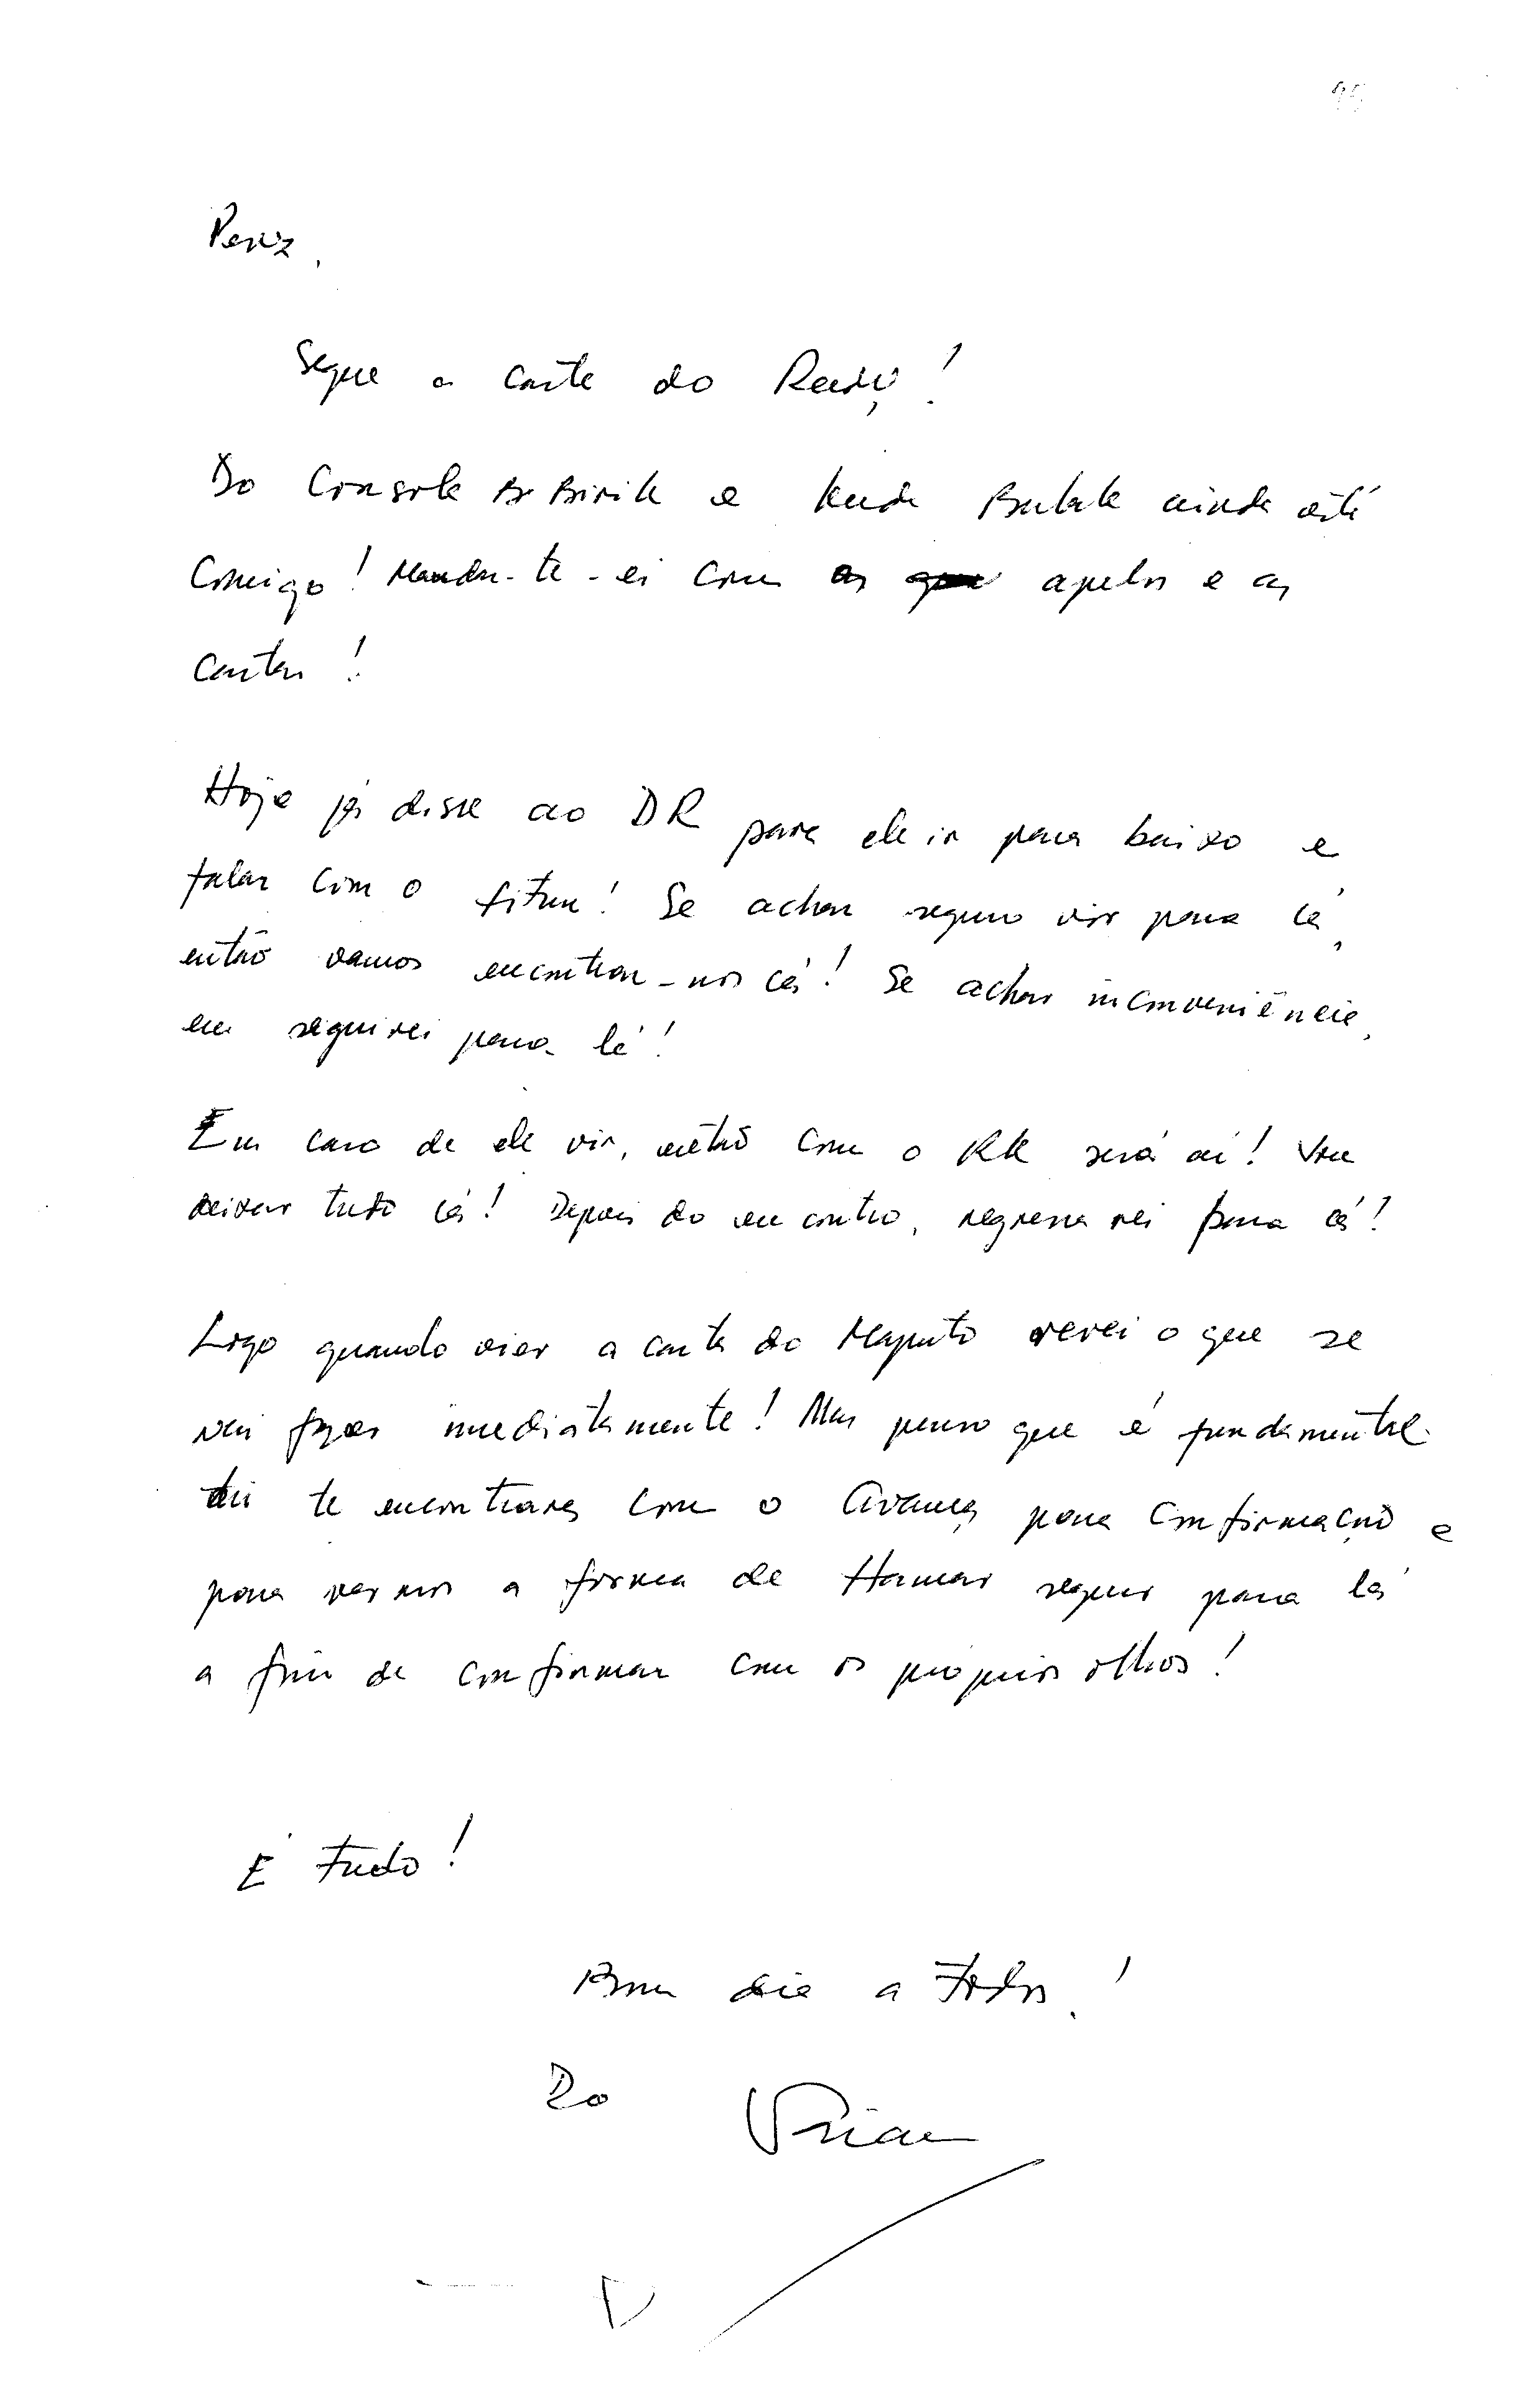 Segue a carta do
Do Console e Kuda ainda está
comigo! Mandar-te-ei com os apelos e as
cartas!
Hoje já disse ao DR para ele ir para baixo e
falar com o ! Se achar seguro vir para cá,
então vamos encontrar-nos cá! Se achar inconveniência,
eu seguirei para lá!
Em caso de ele vir, então com o KK será aí! Vou
deixar tudo cá! Depois do encontro, regressarei para cá!
Logo quando vier a carta do Maputo verei o que se
vai fazer imediatamente! Mas penso que é fundamental
te encontrares com o Avança para confirmação e
para vermos a forma de Hamar seguir para lá
a fim de confirmar com os próprios olhos!
É tudo!
Bom dia a todos!
Do